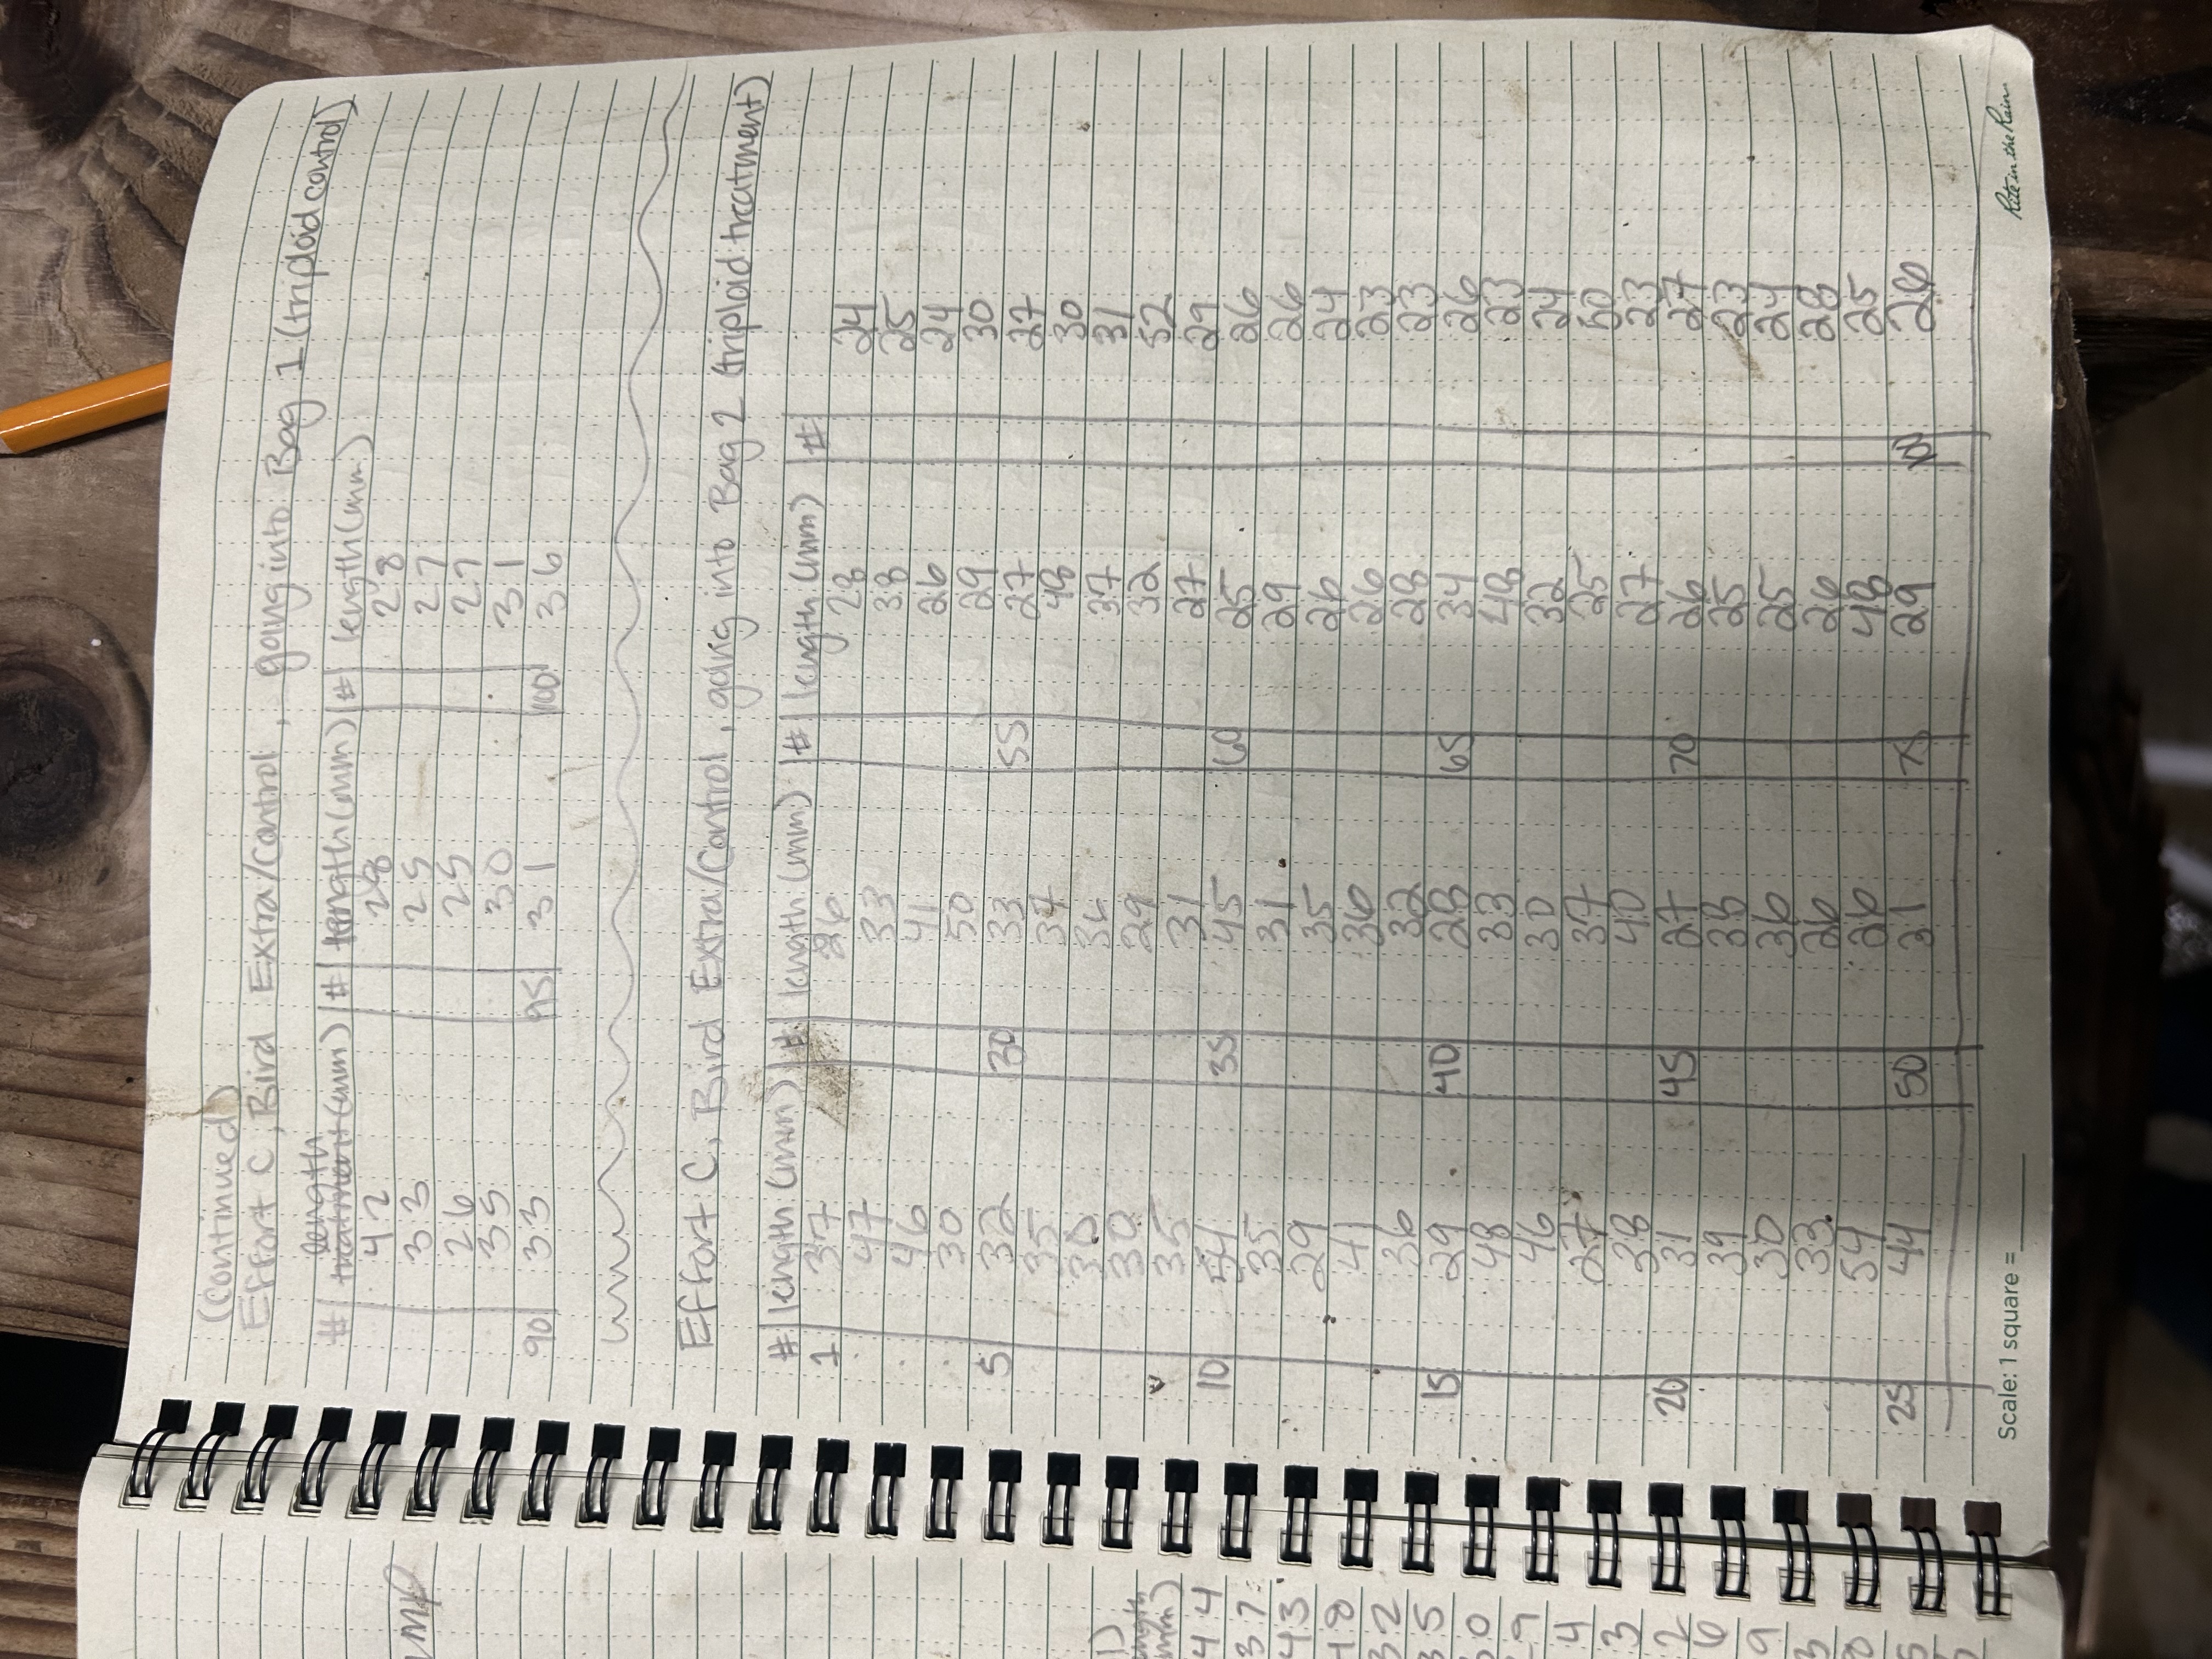 (continued)
Effort C, Bird Extra/Control, going into Bag 1 (triploid control)
length
# treatment (mm) # length (mm) # length (mm)
42 28 28
33 25 27
26 25 27
35 30 31
90 33 95 31 100 36
Effort C, Bird Extra/Control, going into Bag 2 (triploid treatment)
# length (mm) # length (mm) # length (mm) #
1 37 26 28 24
47 33 38 25
46 41 26 24
30 50 29 30
5 32 30 33 55 27 27
35 37 48 30
30 36 37 31
30 29 32 52
35 31 27 29
10 54 35 45 60 25 26
35 31 29 26
29 35 26 24
41 36 26 23
36 32 28 23
15 29 40 28 65 34 26
48 33 48 23
46 30 32 24
27 37 25 50
28 40 27 23
20 31 45 27 70 26 27
39 38 25 23
30 36 25 24
33 26 26 28
54 26 48 25
25 44 50 31 75 29 100 26
Scale: 1 square =
Rite in the Rain
44
37
43
48
32
35